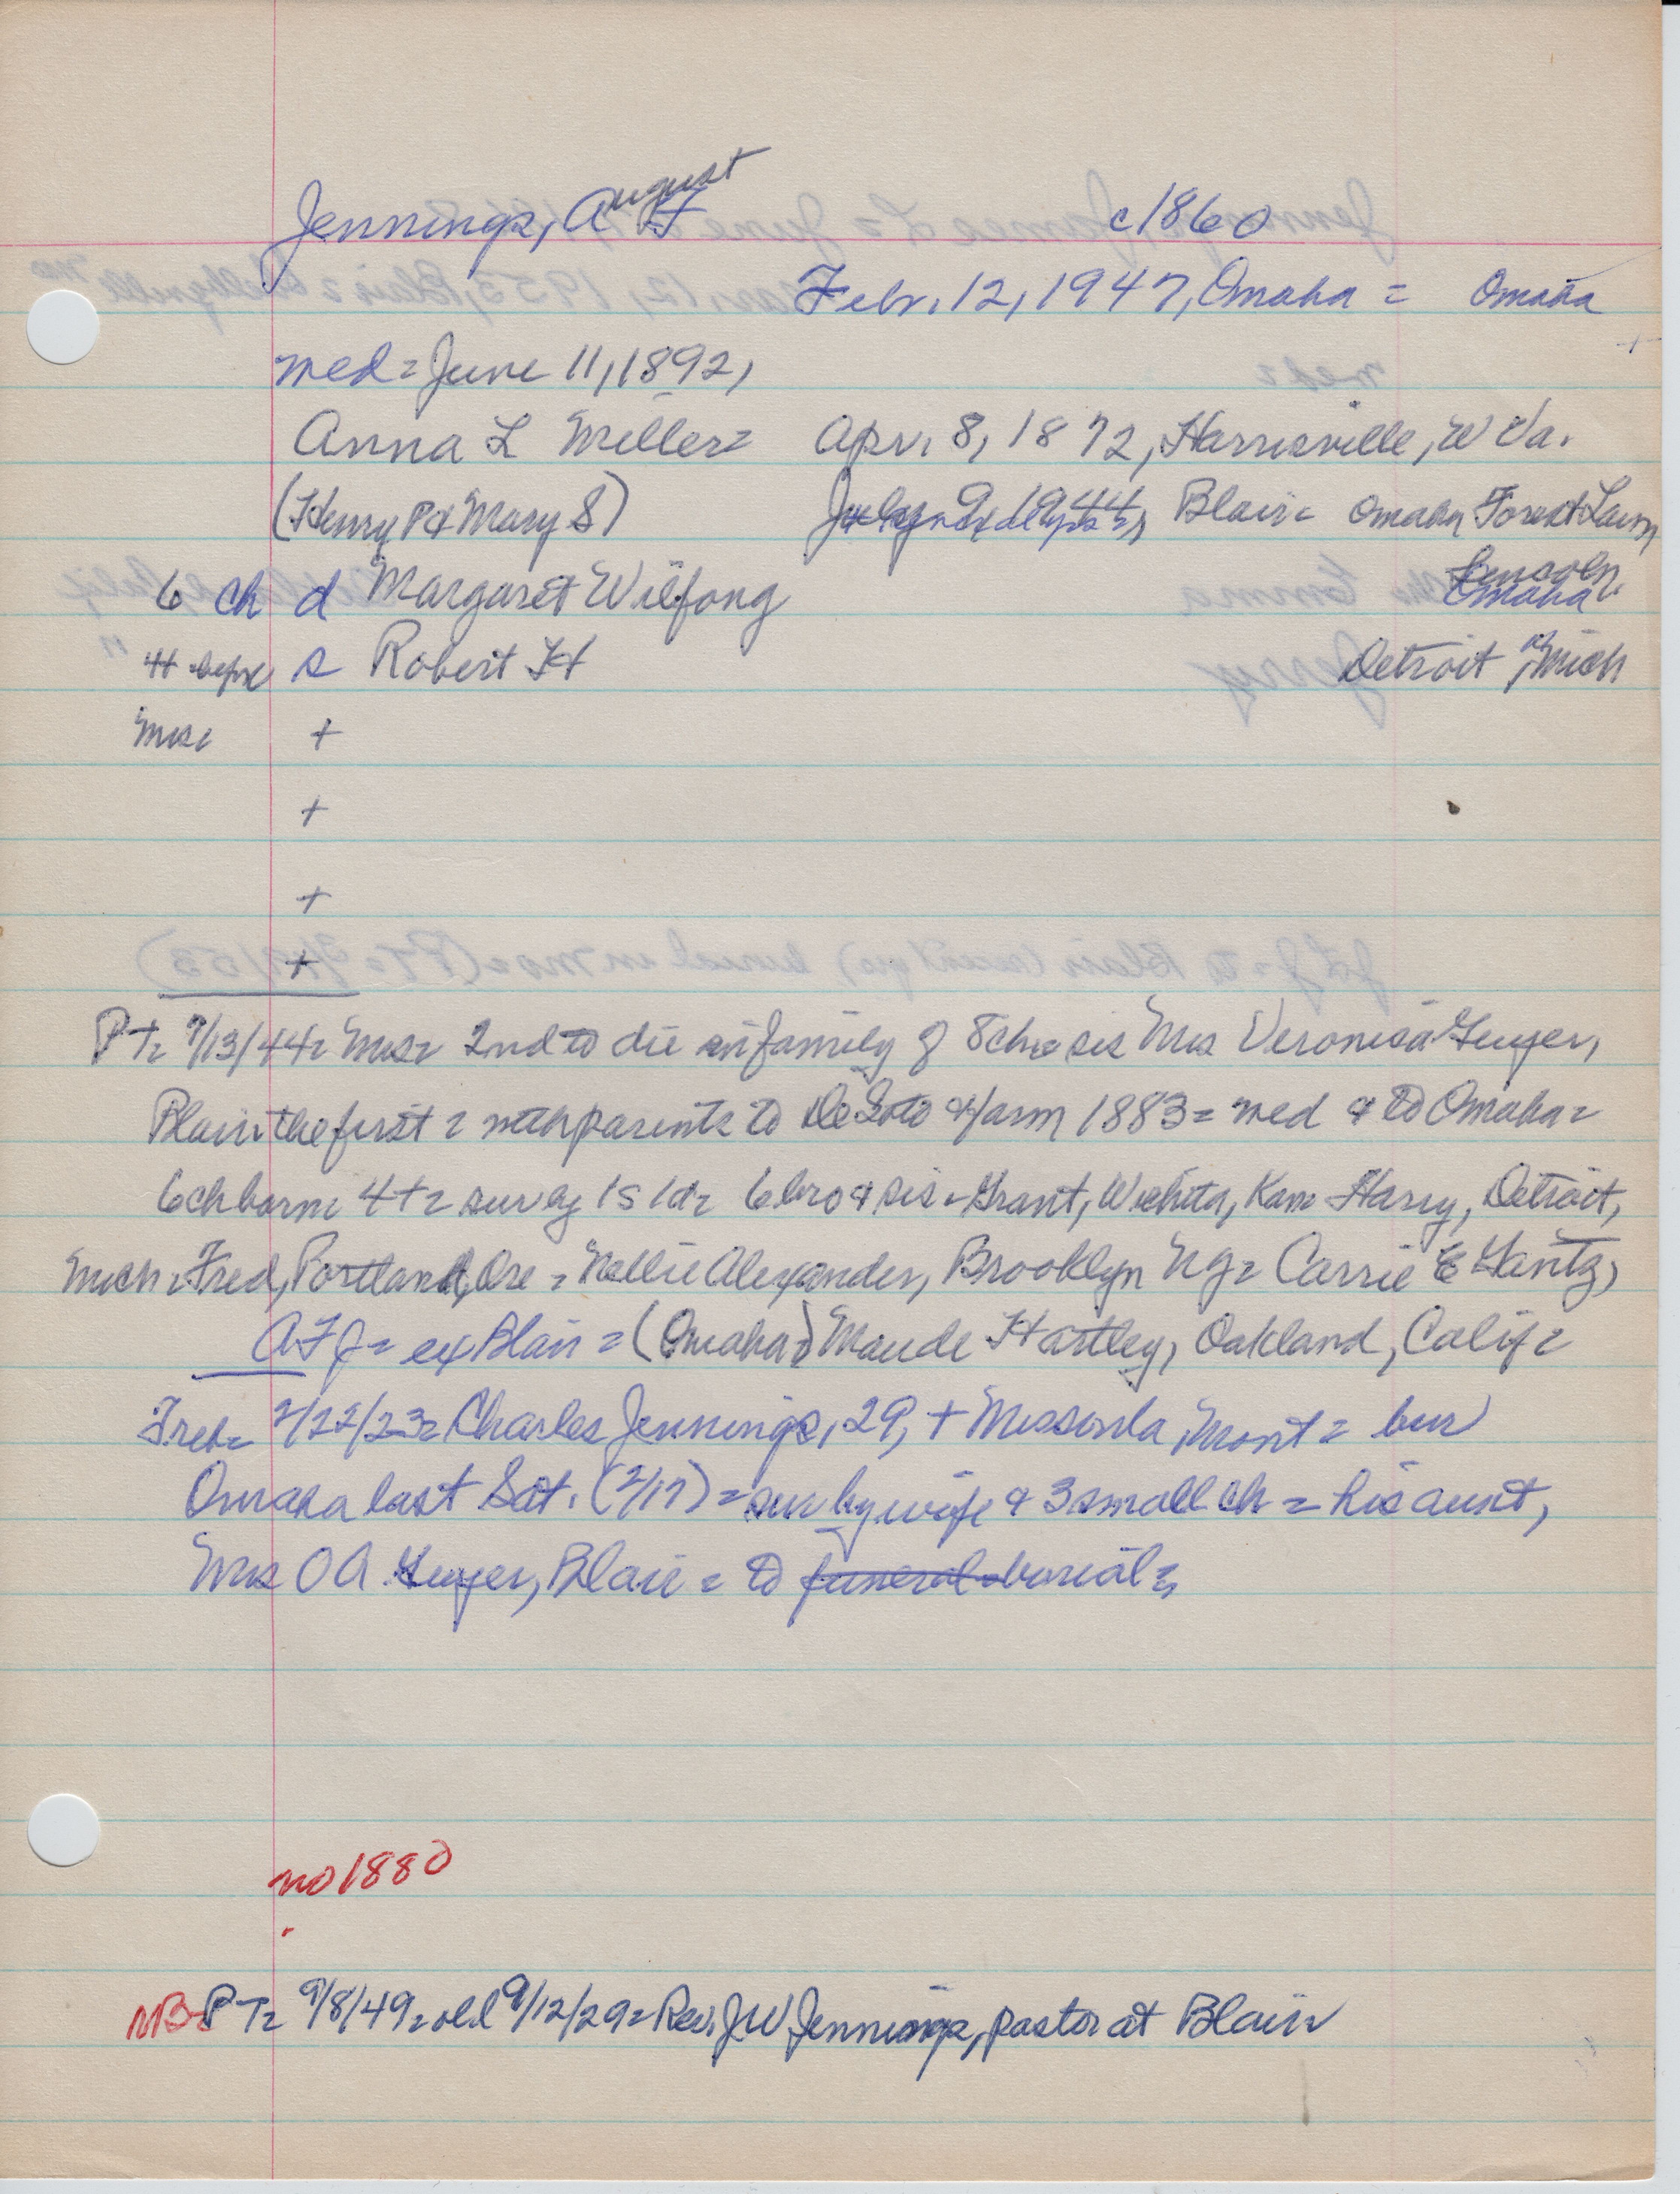 Jennings, August F c1860
Febr. 12, 1947, Omaha = Omaha
med = June 11, 1892,
Anna L Miller = Apr. 8, 1872, Harrisville, W Va.
(Henry P & Mary S) July 9, 1944, Blair = Omaha Forest Lawn
6 ch d Margaret Wilfong Lincoln Omaha
4+ before s Robert H Detroit, Mich
Mrs +
+
+
+
PT = 7/13/44 = Mrs = 2nd to die in family of 8 ch = sis Mrs Veronica Guyer,
Blair the first = with parents to DeSoto & farm 1883 = med & to Omaha =
6 ch born 4+ = surv by 1s 1d = 6 bro & sis = Grant, Wichita, Kan = Harry, Detroit,
Mich = Fred, Portland, Ore = Nellie Alexander, Brooklyn NY = Carrie E Gantz,
AFJ = ex Blair = (Omaha) Maude Hartley, Oakland, Calif =
Treb = 2/22/23 = Charles Jennings, 29, + Missoula, Mont = bur
Omaha last Sat. (2/17) = sur by wife & 3 small ch = his aunt,
Mrs O A Guyer, Blair = to funeral burial =
no 1880
NB = PT = 9/8/49 = old 9/12/29 = Rev. J W Jennings, pastor at Blair